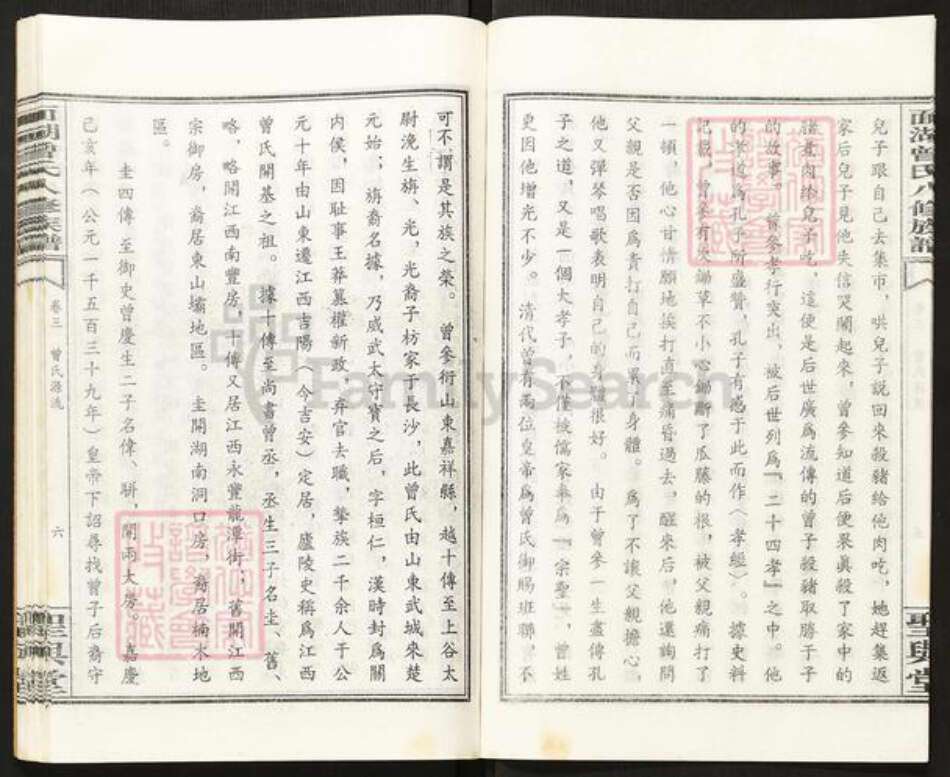 面湖曾氏八修族譜
聖興堂
兒子跟自己去集市，哄兒子說回來殺豬給他肉吃，她趕集返
家后兒子見他失信哭鬧起來，曾參知道后便果眞殺了家中的
豬煮肉給兒子吃，這便是后世廣爲流傳的曾子殺豬取勝于子
的故事。 曾參孝行突出，被后世列爲『二十四孝』之中。他
的孝道爲孔子所盛贊，孔子有感于此而作《孝經》。據史料
記載，曾參有次鋤草不小心鋤斷了瓜藤的根，被父親痛打了
一頓，他心甘情願地挨打直至痛昏過去，醒來后，他還詢問
父親是否因爲責打自己而累了身體。 爲了不讓父親擔心，
他又彈琴唱歌表明自己的身體很好。 由于曾參一生盡傳孔
子之道，又是一個大孝子，不僅被儒家奉爲『宗聖』，曾姓
更因他增光不少。清代曾有兩位皇帝爲曾氏御賜班聯，不
可不謂是其族之榮。 曾參衍山東嘉祥縣，越十傳至上谷太
尉浼生旃、光，光裔子枋家于長沙，此曾氏由山東武城來楚
元始；旃裔名據，乃威武太守寶之后，字桓仁，漢時封爲關
内侯，因耻事王莽篡權新政，弃官去職，挈族二千余人于公
元十年由山東遷江西吉陽（今吉安）定居，廬陵史稱爲江西
曾氏開基之祖。 據十傳至尚書曾丞，丞生三子名圭、舊、
略，略開江西南豐房，十傳又居江西永豐龍潭街；舊開江西
宗御房，裔居東山壩地區。 圭開湖南洞口房，裔居楠木地
區。
圭四傳至御史曾慶生二子名偉、駢，開兩大房。 嘉慶
己亥年（公元一千五百三十九年）皇帝下詔尋找曾子后裔守
卷三 曾氏源流
六
面湖曾氏八修族譜
聖興堂
FamilySearch